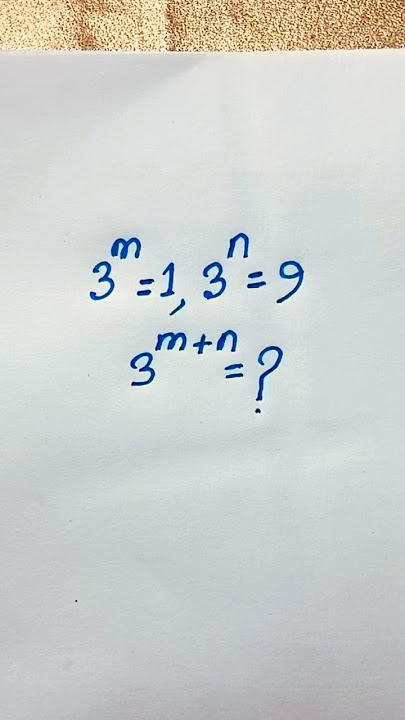 3^m = 1, 3^n = 9
3^m+n = ?